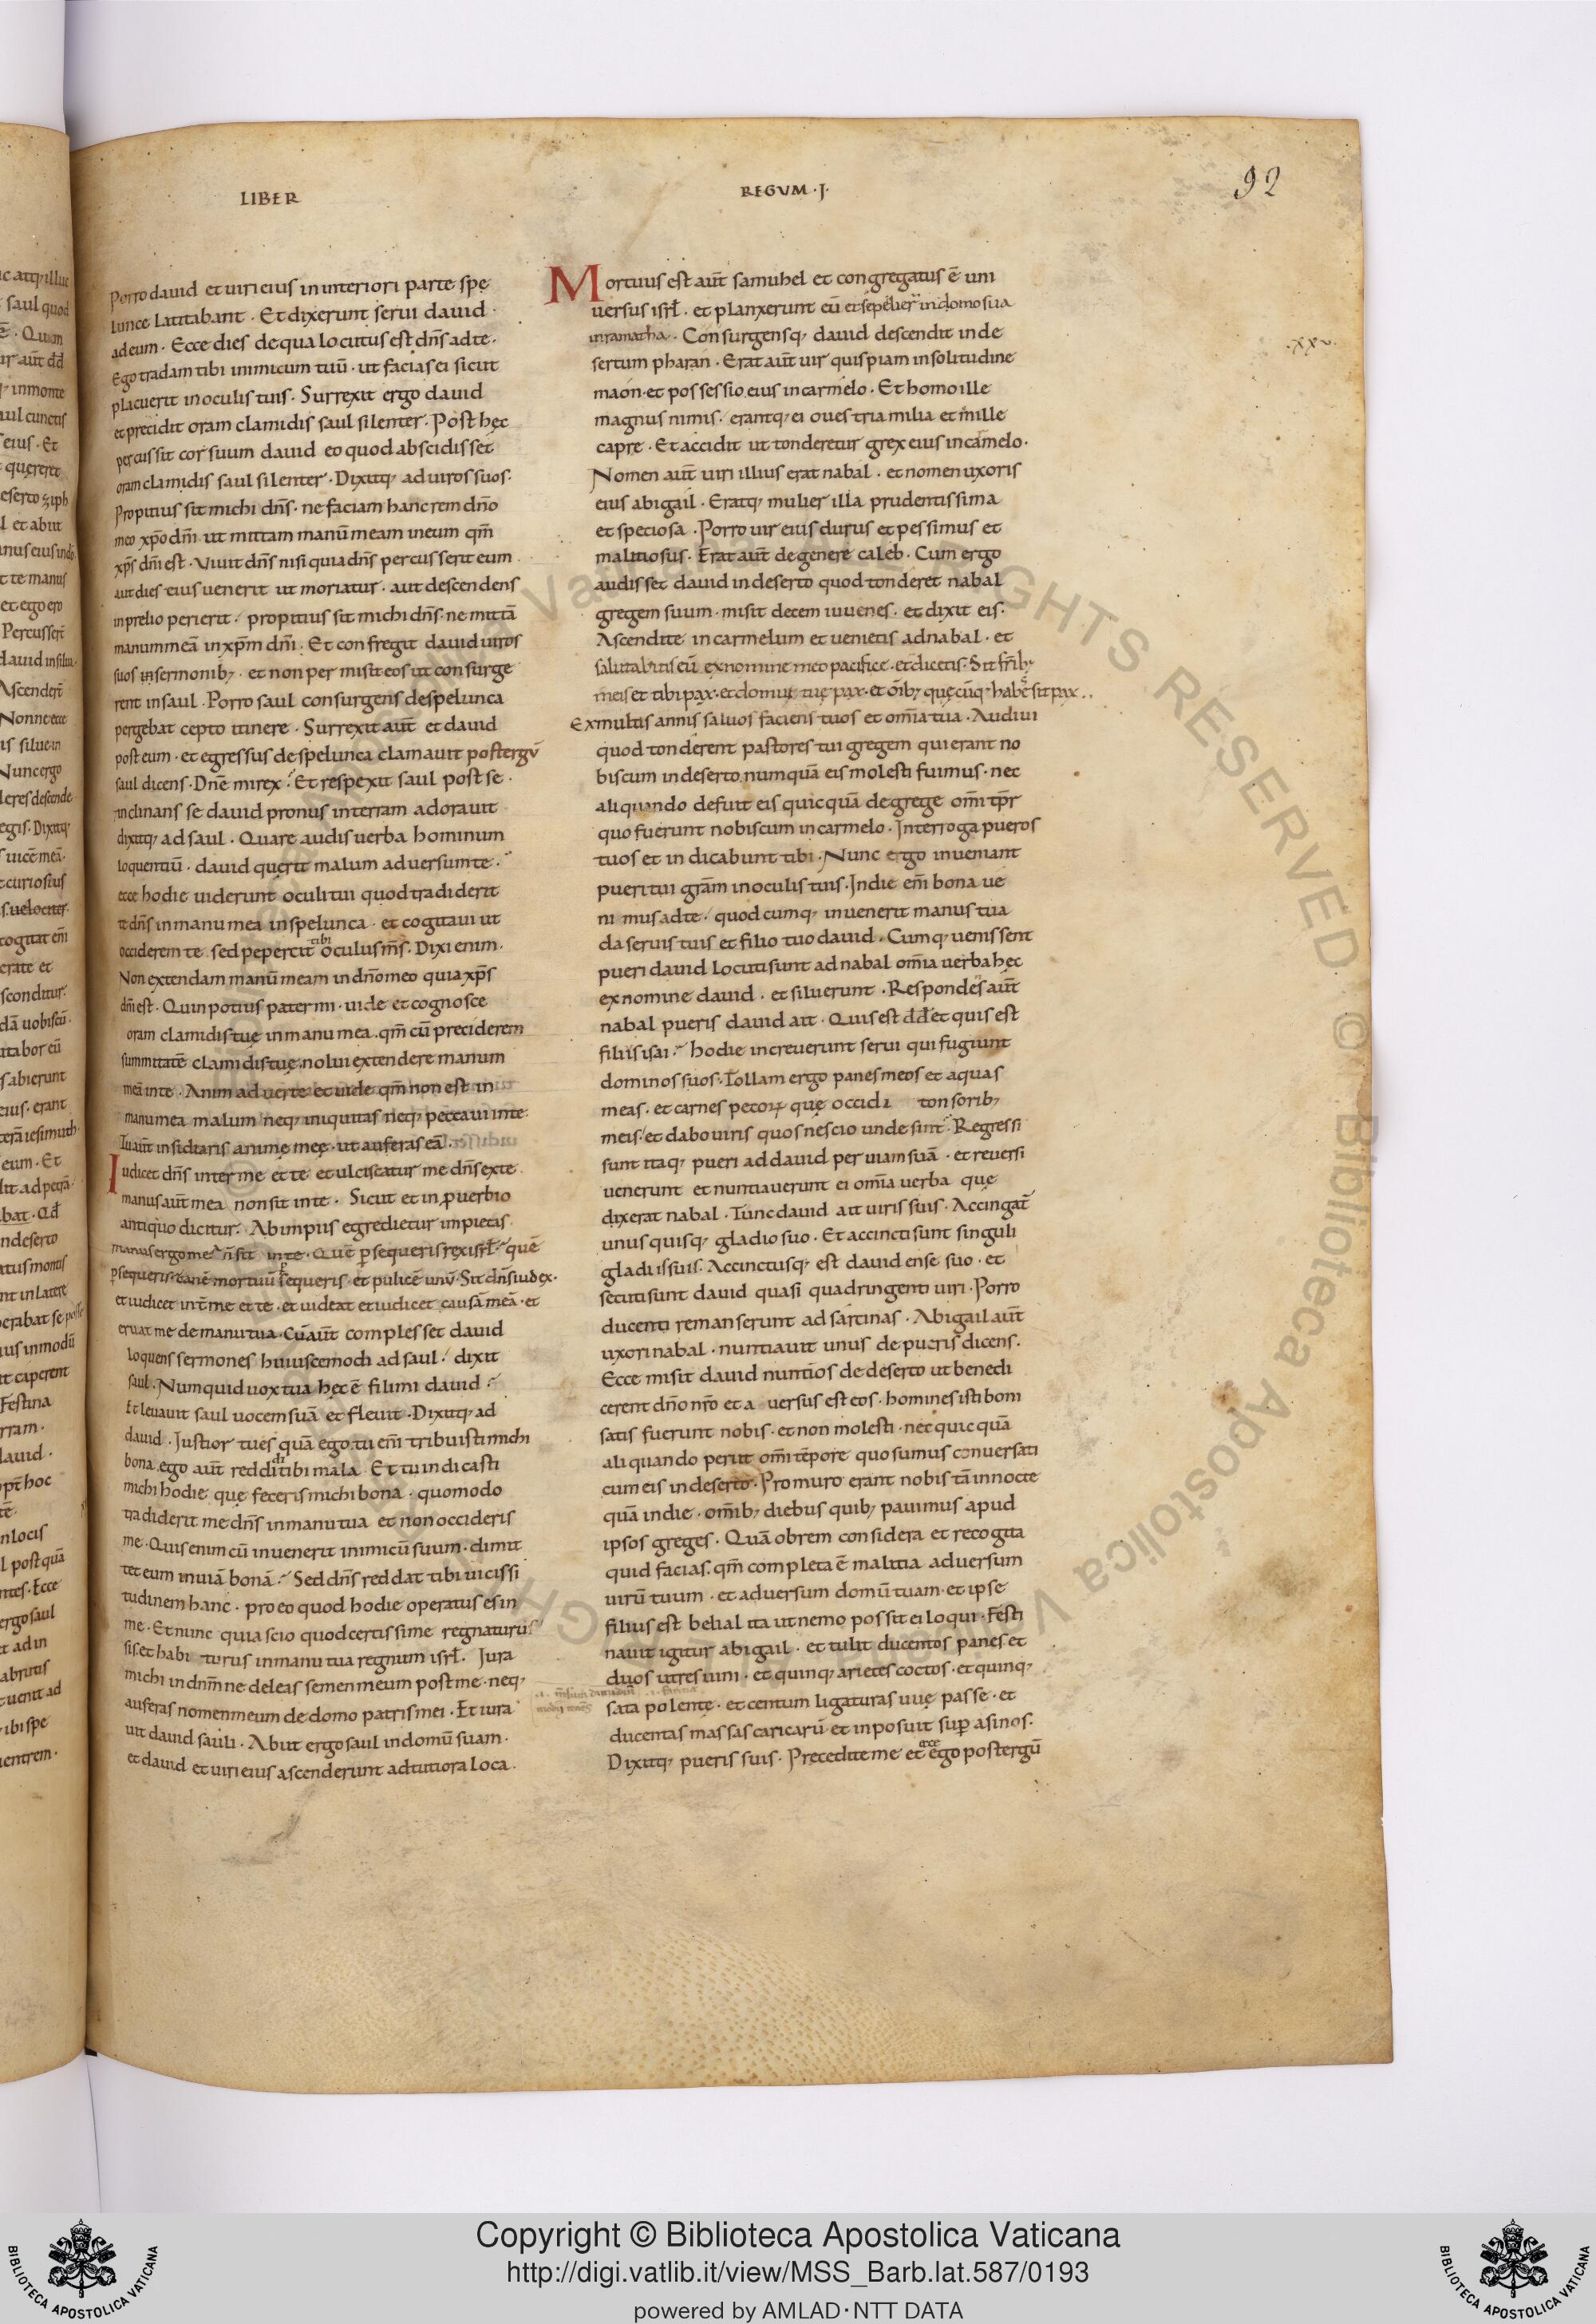 LIBER
REGVM · I ·
92
Porro dauid et uiri eius in interiori parte spę
lunce latitabant . Et dixerunt serui dauid .
ad eum . Ecce dies de qua locutus est dn̄s ad te .
Ego tradam tibi inimicum tuū . ut facias ei sicut
placuerit in oculis tuis . Surrexit ergo dauid
et precidit oram clamidis saul silenter . Post hęc
percussit cor suum dauid eo quod abscidisset
oram clamidis saul silenter . Dixitq; ad uiros suos .
Propitius sit michi dn̄s . ne faciam hanc rem dn̄o
meo xp̄o dn̄i ut mittam manū meam in eum qm̄
xp̄s dn̄i est . Viuit dn̄s nisi quia dn̄s percusserit eum .
aut dies eius uenerit ut moriatur . aut descendens
in prelio perierit . propitius sit michi dn̄s . ne mittā
manum meā in xp̄m dn̄i . Et confregit dauid uiros
suos in sermonib; . et non permisit eos ut consurge
rent in saul . Porro saul consurgens de spelunca
pergebat cepto itinere . Surrexit aut̄ et dauid
post eum . et egressus de spelunca clamauit post ergū
saul dicens . Dn̄e mi rex . Et respexit saul post se .
inclinans se dauid pronus in terram adorauit
dixitq; ad saul . Quare audis uerba hominum
loquentiū . dauid querit malum aduersum te .
ecce hodie uiderunt oculi tui quod tradiderit
te dn̄s in manu mea in spelunca . et cogitaui ut
occiderem te . sed pepercit tibi oculus m̄s . Dixi enim .
Non extendam manū meam in dn̄o meo quia xp̄s
dn̄i est . Quin potius pater mi . uide et cognosce
oram clamidis tuę in manu mea . qm̄ cū preciderem
summitatē clamidis tuę . nolui extendere manum
meā in te . Animaduerte et uide qm̄ non est in
manu mea malum neq; iniquitas neq; peccaui in te .
Tu aut̄ insidiaris anime meę . ut auferas eā .
Iudicet dn̄s inter me et te et ulciscatur me dn̄s ex te .
manus aut̄ mea non sit in te . Sicut et in prouerbio
antiquo dicitur . Ab impiis egredietur impietas .
manus ergo mea n̄ sit in te . Quē persequeris rex isrł . quē
persequeris . canē mortuū persequeris . et pulicē unū . Sit dn̄s iudex .
et iudicet int̄ me et te . et uideat et iudicet causā meā . et
eruat me de manu tua . Cū aut̄ complesset dauid
loquens sermones huiuscemodi ad saul . dixit
saul . Numquid uox tua hęc ē fili mi dauid .
Et leuauit saul uocem suā et fleuit . Dixitq; ad
dauid . Iustior tu es quā ego . tu em̄ tribuisti michi
bona . ego aut̄ reddidi tibi mala . Et tu indicasti
michi hodie que feceris michi bona . quomodo
tradiderit me dn̄s in manu tua et non occideris
me . Quis enim cū inuenerit inimicū suum . dimit
tet eum in uiā bonā . Sed dn̄s reddat tibi uicissi
tudinem hanc . pro eo quod hodie operatus es in
me . Et nunc quia scio quod certissime regnaturus
sis . et habiturus in manu tua regnum isrł . Iura
michi in dn̄m ne deleas semen meum post me . neq;
auferas nomen meum de domo patris mei . Et iura
uit dauid sauli . Abiit ergo saul in domū suam .
et dauid et uiri eius ascenderunt ad tutiora loca .
Mortuus est aut̄ samuhel et congregatus ē uni
uersus isrł . et planxerunt eū et sepelier̄ in domo sua
in ramatha . Consurgensq; dauid descendit in de
sertum pharan . Erat aut̄ uir quispiam in solitudine
maon . et possessio eius in carmelo . Et homo ille
magnus nimis . erantq; ei oues tria milia et mille
capre . Et accidit ut tonderetur grex eius in carmelo .
Nomen aut̄ uiri illius erat nabal . et nomen uxoris
eius abigail . Eratq; mulier illa prudentissima
et speciosa . Porro uir eius durus et pessimus et
malitiosus . Erat aut̄ de genere caleb . Cum ergo
audisset dauid in deserto quod tonderet nabal
gregem suum . misit decem iuuenes . et dixit eis .
Ascendite in carmelum et uenietis ad nabal . et
salutabitis eū ex nomine meo pacifice . et dicetis . Sit fr̄ib;
meis et tibi pax . et domui tuę pax . et oīb; quęcūq; habēs sit pax .
Ex multis annis saluos faciens tuos et om̄ia tua . Audiui
quod tonderent pastores tui gregem qui erant no
biscum in deserto numquā eis molesti fuimus . nec
aliquando defuit eis quicquā de grege om̄i tp̄r
quo fuerunt nobiscum in carmelo . Interroga pueros
tuos et indicabunt tibi . Nunc ergo inueniant
pueri tui grām in oculis tuis . In die em̄ bona ue
nimus ad te . quodcumq; inuenerit manus tua
da seruis tuis et filio tuo dauid . Cumq; uenissent
pueri dauid locuti sunt ad nabal om̄ia uerba hęc
ex nomine dauid . et siluerunt . Respondēs aut̄
nabal pueris dauid ait . Quis est dd̄ et quis est
filius isai . hodie increuerunt serui qui fugiunt
dominos suos . Tollam ergo panes meos et aquas
meas . et carnes pecorꝝ quę occidi tonsorib;
meis . et dabo uiris quos nescio unde sint . Regressi
sunt itaq; pueri ad dauid per uiam suā . et reuersi
uenerunt et nuntiauerunt ei om̄ia uerba que
dixerat nabal . Tunc dauid ait uiris suis . Accingat̄
unusquisq; gladio suo . Et accincti sunt singuli
gladiis suis . Accinctusq; est dauid ense suo . et
secuti sunt dauid quasi quadringenti uiri . Porro
ducenti remanserunt ad sarcinas . Abigail aut̄
uxori nabal . nuntiauit unus de pueris dicens .
Ecce misit dauid nuntios de deserto ut benedi
cerent dn̄o nr̄o et a uersus est eos . homines isti boni
satis fuerunt nobis . et non molesti . nec quicquā
aliquando periit om̄i tēpore quo sumus conuersati
cum eis in deserto . Pro muro erant nobis tā in nocte
quā in die . om̄ib; diebus quib; pauimus apud
ipsos greges . Quā obrem considera et recogita
quid facias . qm̄ completa ē malitia aduersum
uirū tuum . et aduersum domū tuam . et ipse
filius est belial ita ut nemo possit ei loqui . Festi
nauit igitur abigail . et tulit ducentos panes et
duos utres uini . et quinq; arietes coctos . et quinq;
sata polente . et centum ligaturas uuę passe . et
ducentas massas caricarū . et inposuit sup asinos .
Dixitq; pueris suis . Precedite me ecce ego post ergū
.xxv.
Copyright © Biblioteca Apostolica Vaticana
http://digi.vatlib.it/view/MSS_Barb.lat.587/0193
powered by AMLAD·NTT DATA
BIBLIOTECA APOSTOLICA VATICANA
BIBLIOTECA APOSTOLICA VATICANA